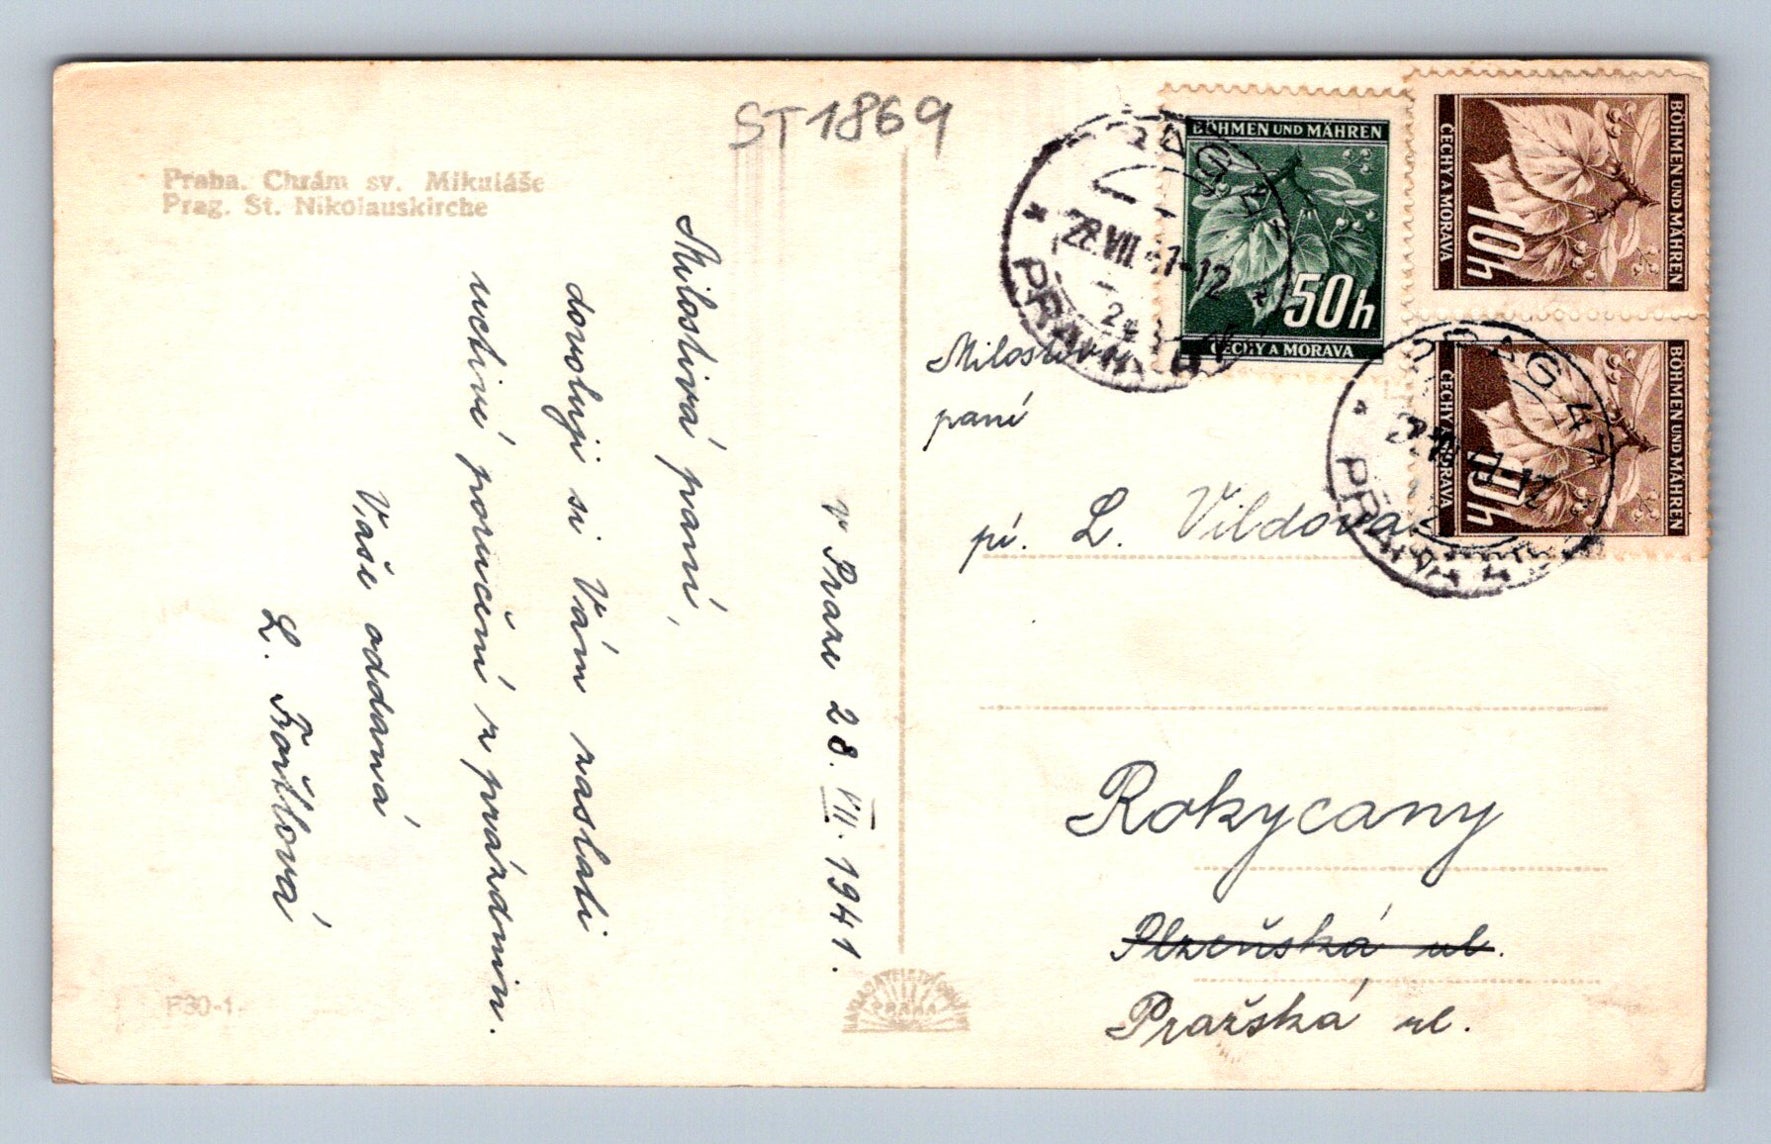 ST1869
Praha. Chrám sv. Mikuláše
Prag. St. Nikolauskirche
v Praze 28. VII. 1941.
Milostivá paní,
dovoluji si Vám zaslati
uctivé poručení z prázdnin.
Vaše oddaná
L.
F30-1.
BÖHMEN UND MÄHREN
50h
ČECHY A MORAVA
BÖHMEN UND MÄHREN
10h
ČECHY A MORAVA
BÖHMEN UND MÄHREN
10h
ČECHY A MORAVA
PRAG 47
28.VII.41-12
PRAHA
PRAG 47
PRAHA
paní
pí. L. Vildova
Rokycany
Plzeňská ul.
Pražská ul.
PRAHA